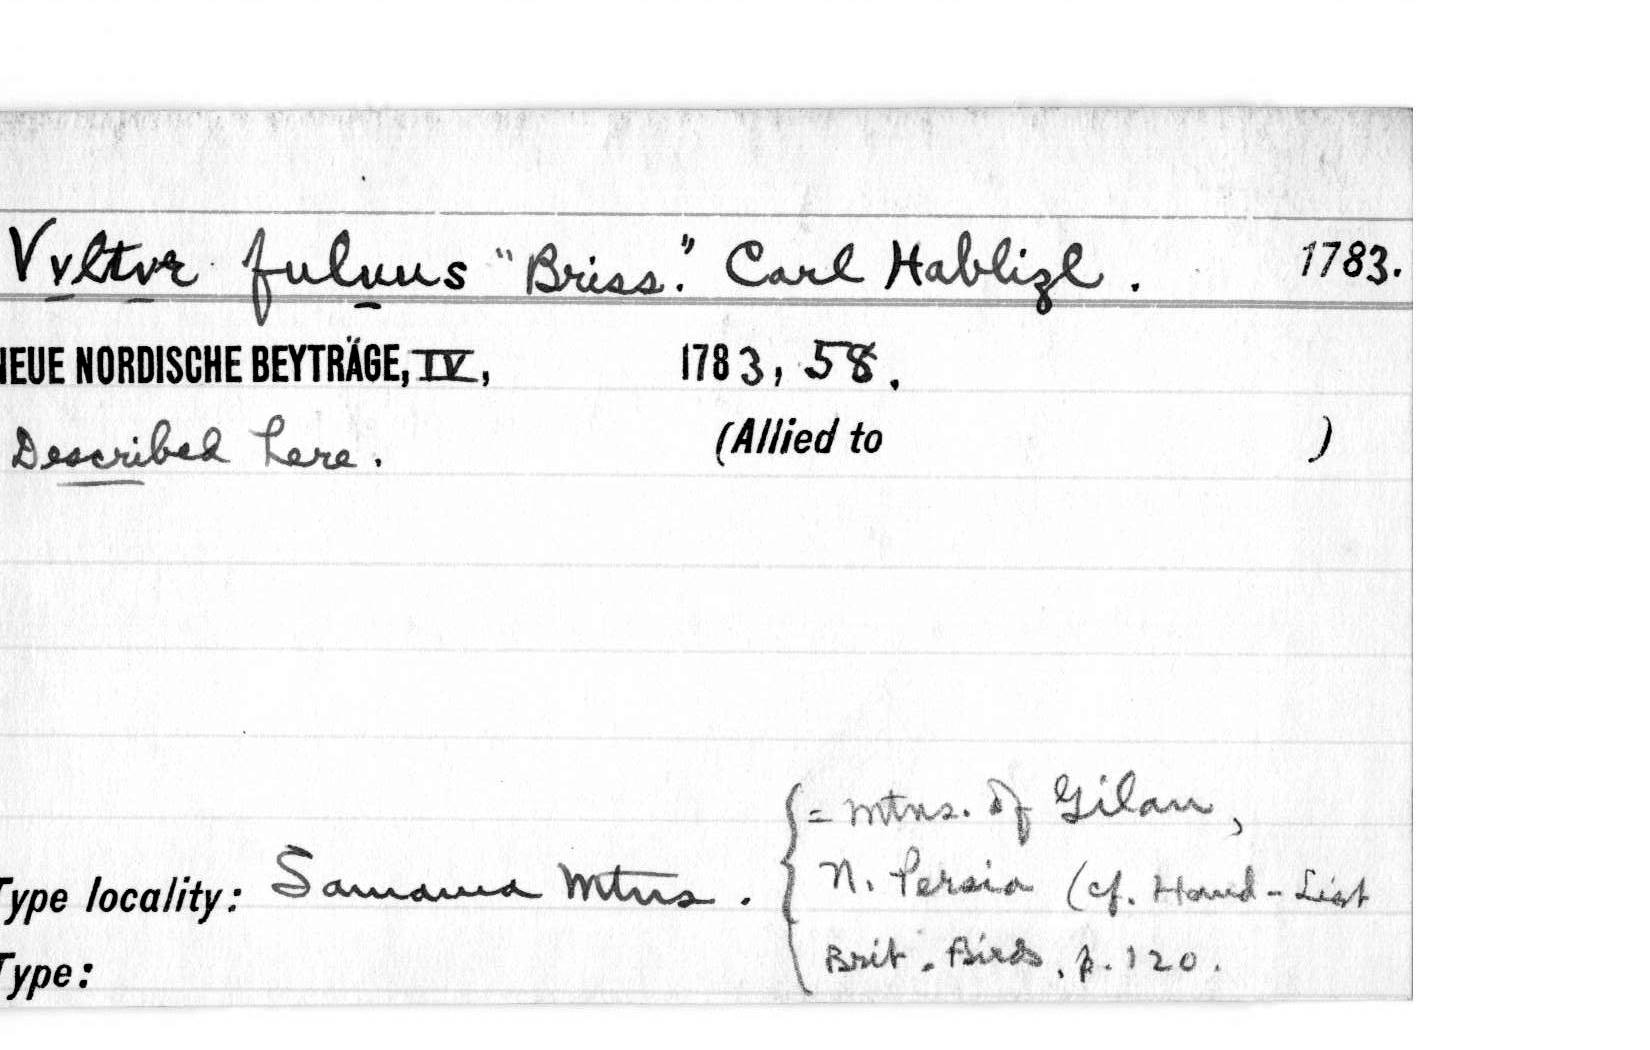 Vvltvr fulvus "Briss." Carl Hablizl. 1783.
NEUE NORDISCHE BEYTRÄGE, IV, 1783, 58.
Described here. (Allied to )
= mtns. of Gilan,
Type locality: Samawa Mtns. N. Persia (cf. Hand-List
Brit. Birds, p. 120.
Type: